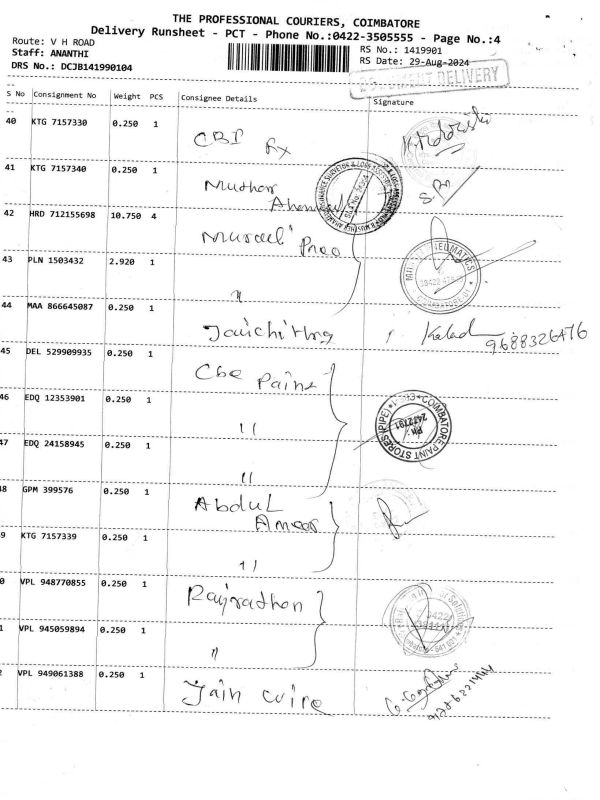 THE PROFESSIONAL COURIERS, COIMBATORE
Delivery Runsheet - PCT - Phone No.:0422-3505555 - Page No.:4
Route: V H ROAD
RS No.: 1419901
Staff: ANANTHI
RS Date: 29-Aug-2024
DRS No.: DCJB141990104
DELIVERY
S No Consignment No Weight PCS Consignee Details Signature
40 KTG 7157330 0.250 1 CBI Rx
41 KTG 7157340 0.250 1
42 HRD 712155698 10.750 4
43 PLN 1503432 2.920 1 "
44 MAA 866645087 0.250 1 9688326476
45 DEL 529909935 0.250 1 Cbe Paint
COIMBATORE PAINT STORES (PIPE)
Ph: 2472791
46 EDQ 12353901 0.250 1 "
47 EDQ 24158945 0.250 1 "
48 GPM 399576 0.250 1 Abdul
9 KTG 7157339 0.250 1 "
0 VPL 948770855 0.250 1
1 VPL 945059894 0.250 1 "
2 VPL 949061388 0.250 1 Jain wire